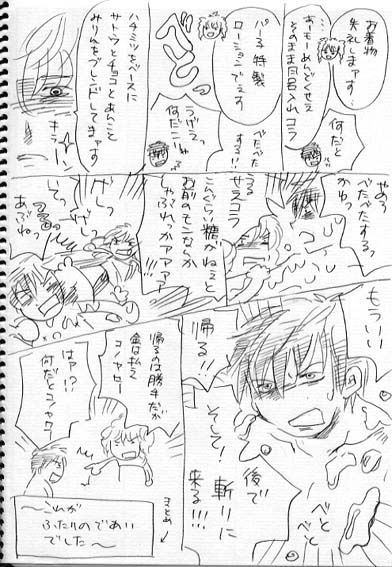 お着物
失礼しまァす…
あーもーめんどくせえ
そのまま
入れコラ
何だと
ぱーる特製
ローションでぇす
べたべた
する!!
うげえっ
何だこりゃ
ハチミツをベースに
サトウとチョコとあんこと
みりんをブレンドしてきァす
やめろ
べたべたするっ
かゆっ
うるサスヨラ
こんぐらい糖がねぇと
お前のモンなんか
しゃぶれっかァァァァ!!!
あぶねっ
もういい
帰る!!
そして!
後で
斬りに
来る!!!
べと
べと
帰るのは勝手だが
金は払え
コノヤロー
はァ!?
何だとコノヤロー
まとめ↓
〜これが
ふたりのであい
でした〜